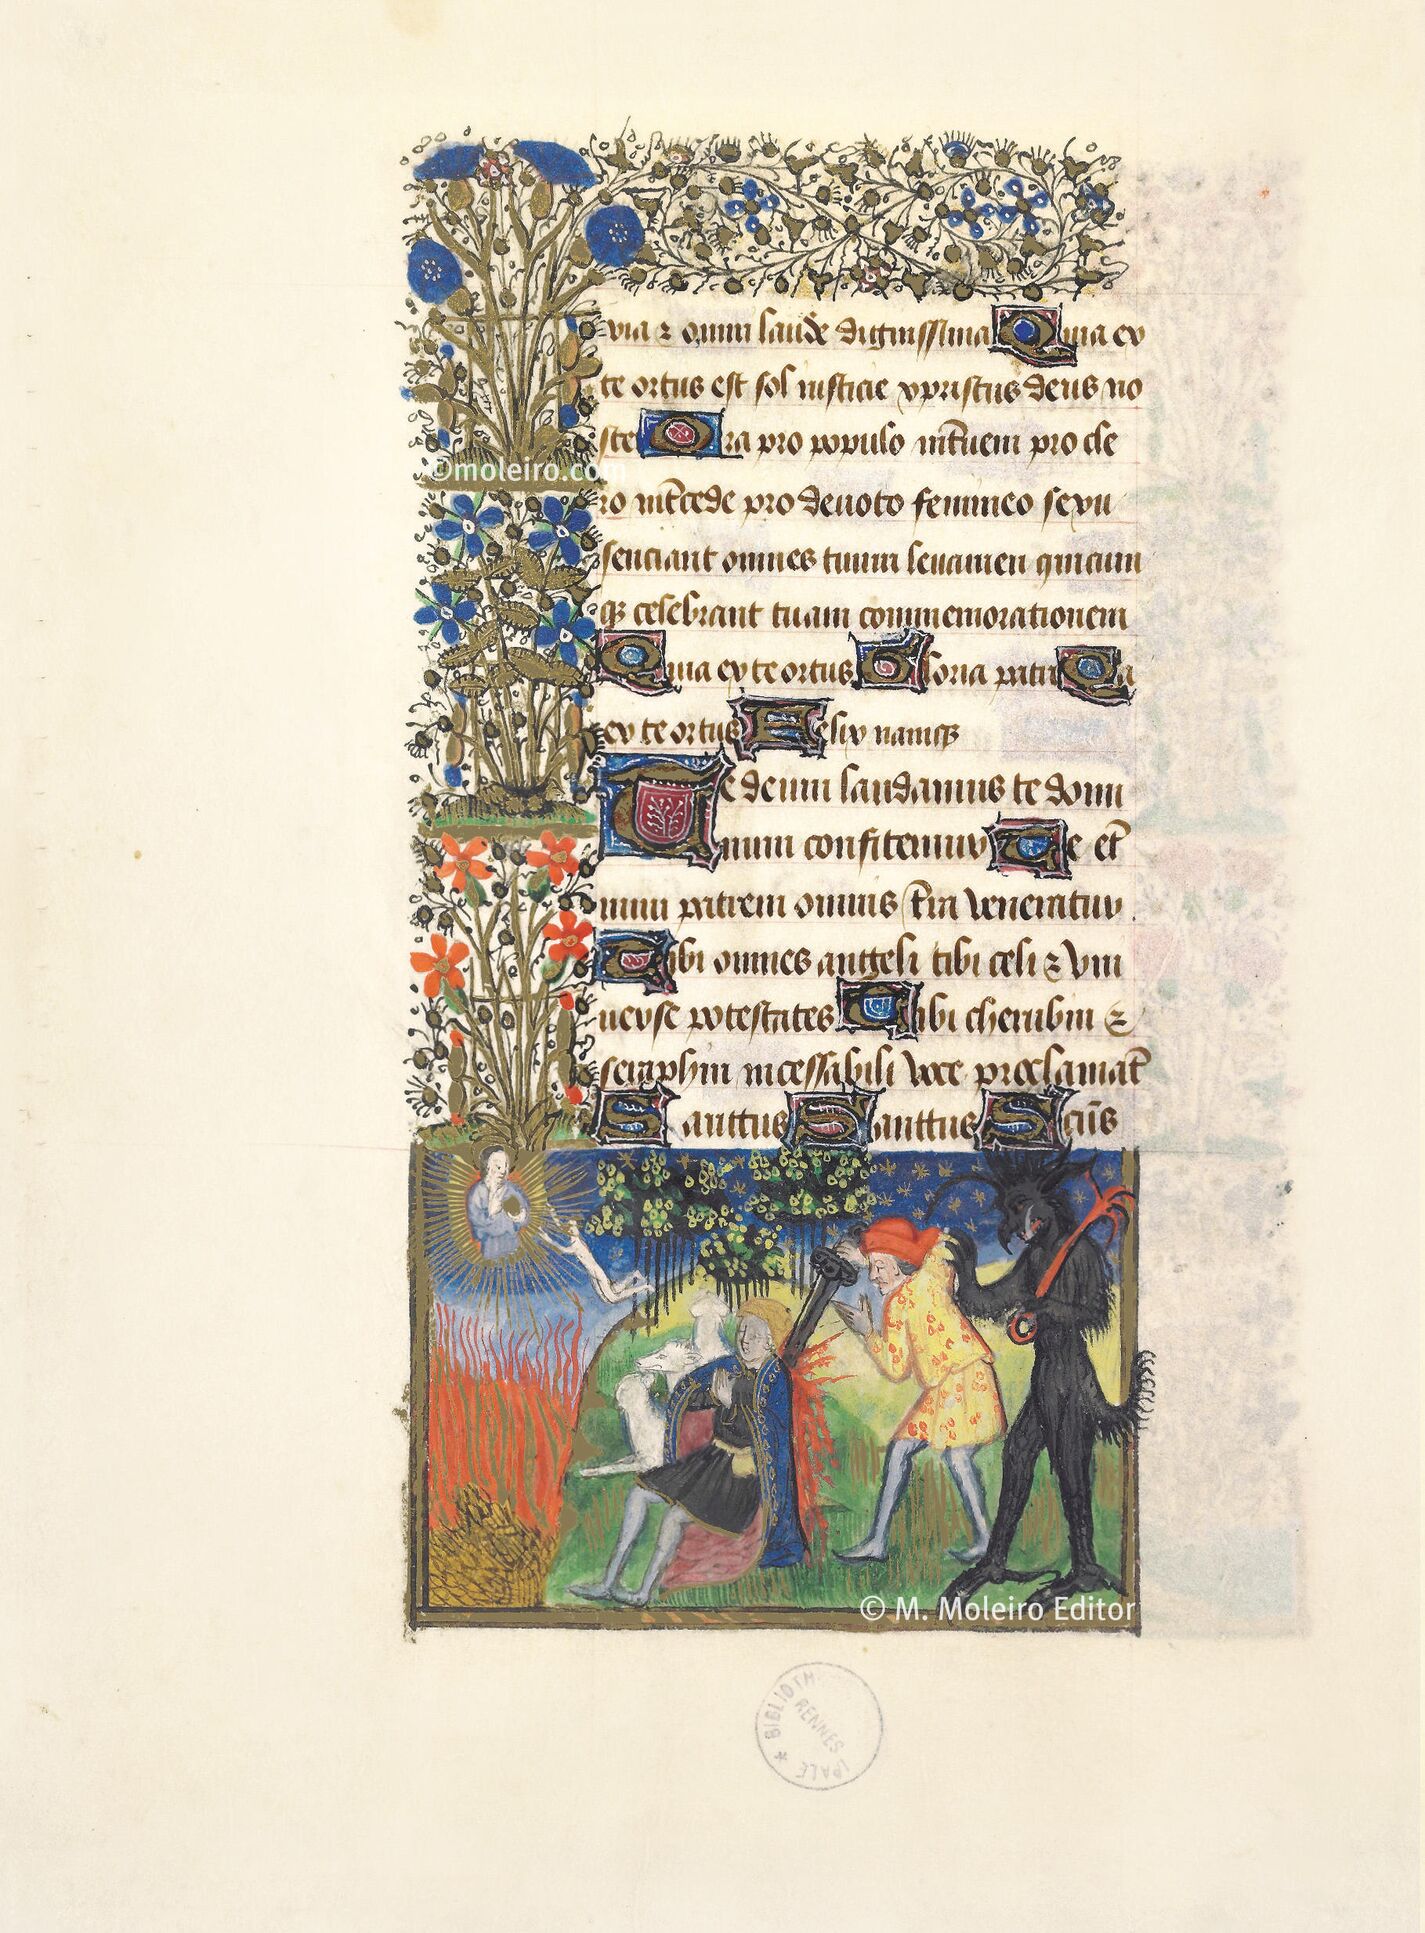 via ⁊ omni laude dignissima Quia ex
te ortus est sol iusticie xpristus deus no
ster Ora pro populo int̄ueni pro cle
ro int̄cede pro deuoto femineo sexu
senciant omnes tuum leuamen quicum
qꝫ celebrant tuam commemorationem
Quia ex te ortus Gloria patri Qa
ex te ortus Felix namqꝫ
Te deum laudamus te domi
num confitemur Te et̄
num patrem omnis t̄ra veneratur
Tibi omnes angeli tibi celi ⁊ vni
uerse potestates Tibi cherubin ⁊
seraphin incessabili voce proclamāt
Sanctus Sanctus Sc̄us
©moleiro.com
© M. Moleiro Editor
BIBLIOTH
RENNES
IPALE